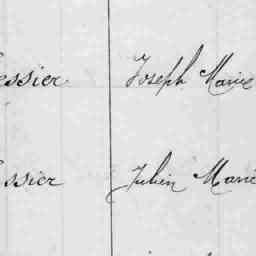 essier Joseph Marie
ssier Julien Marie